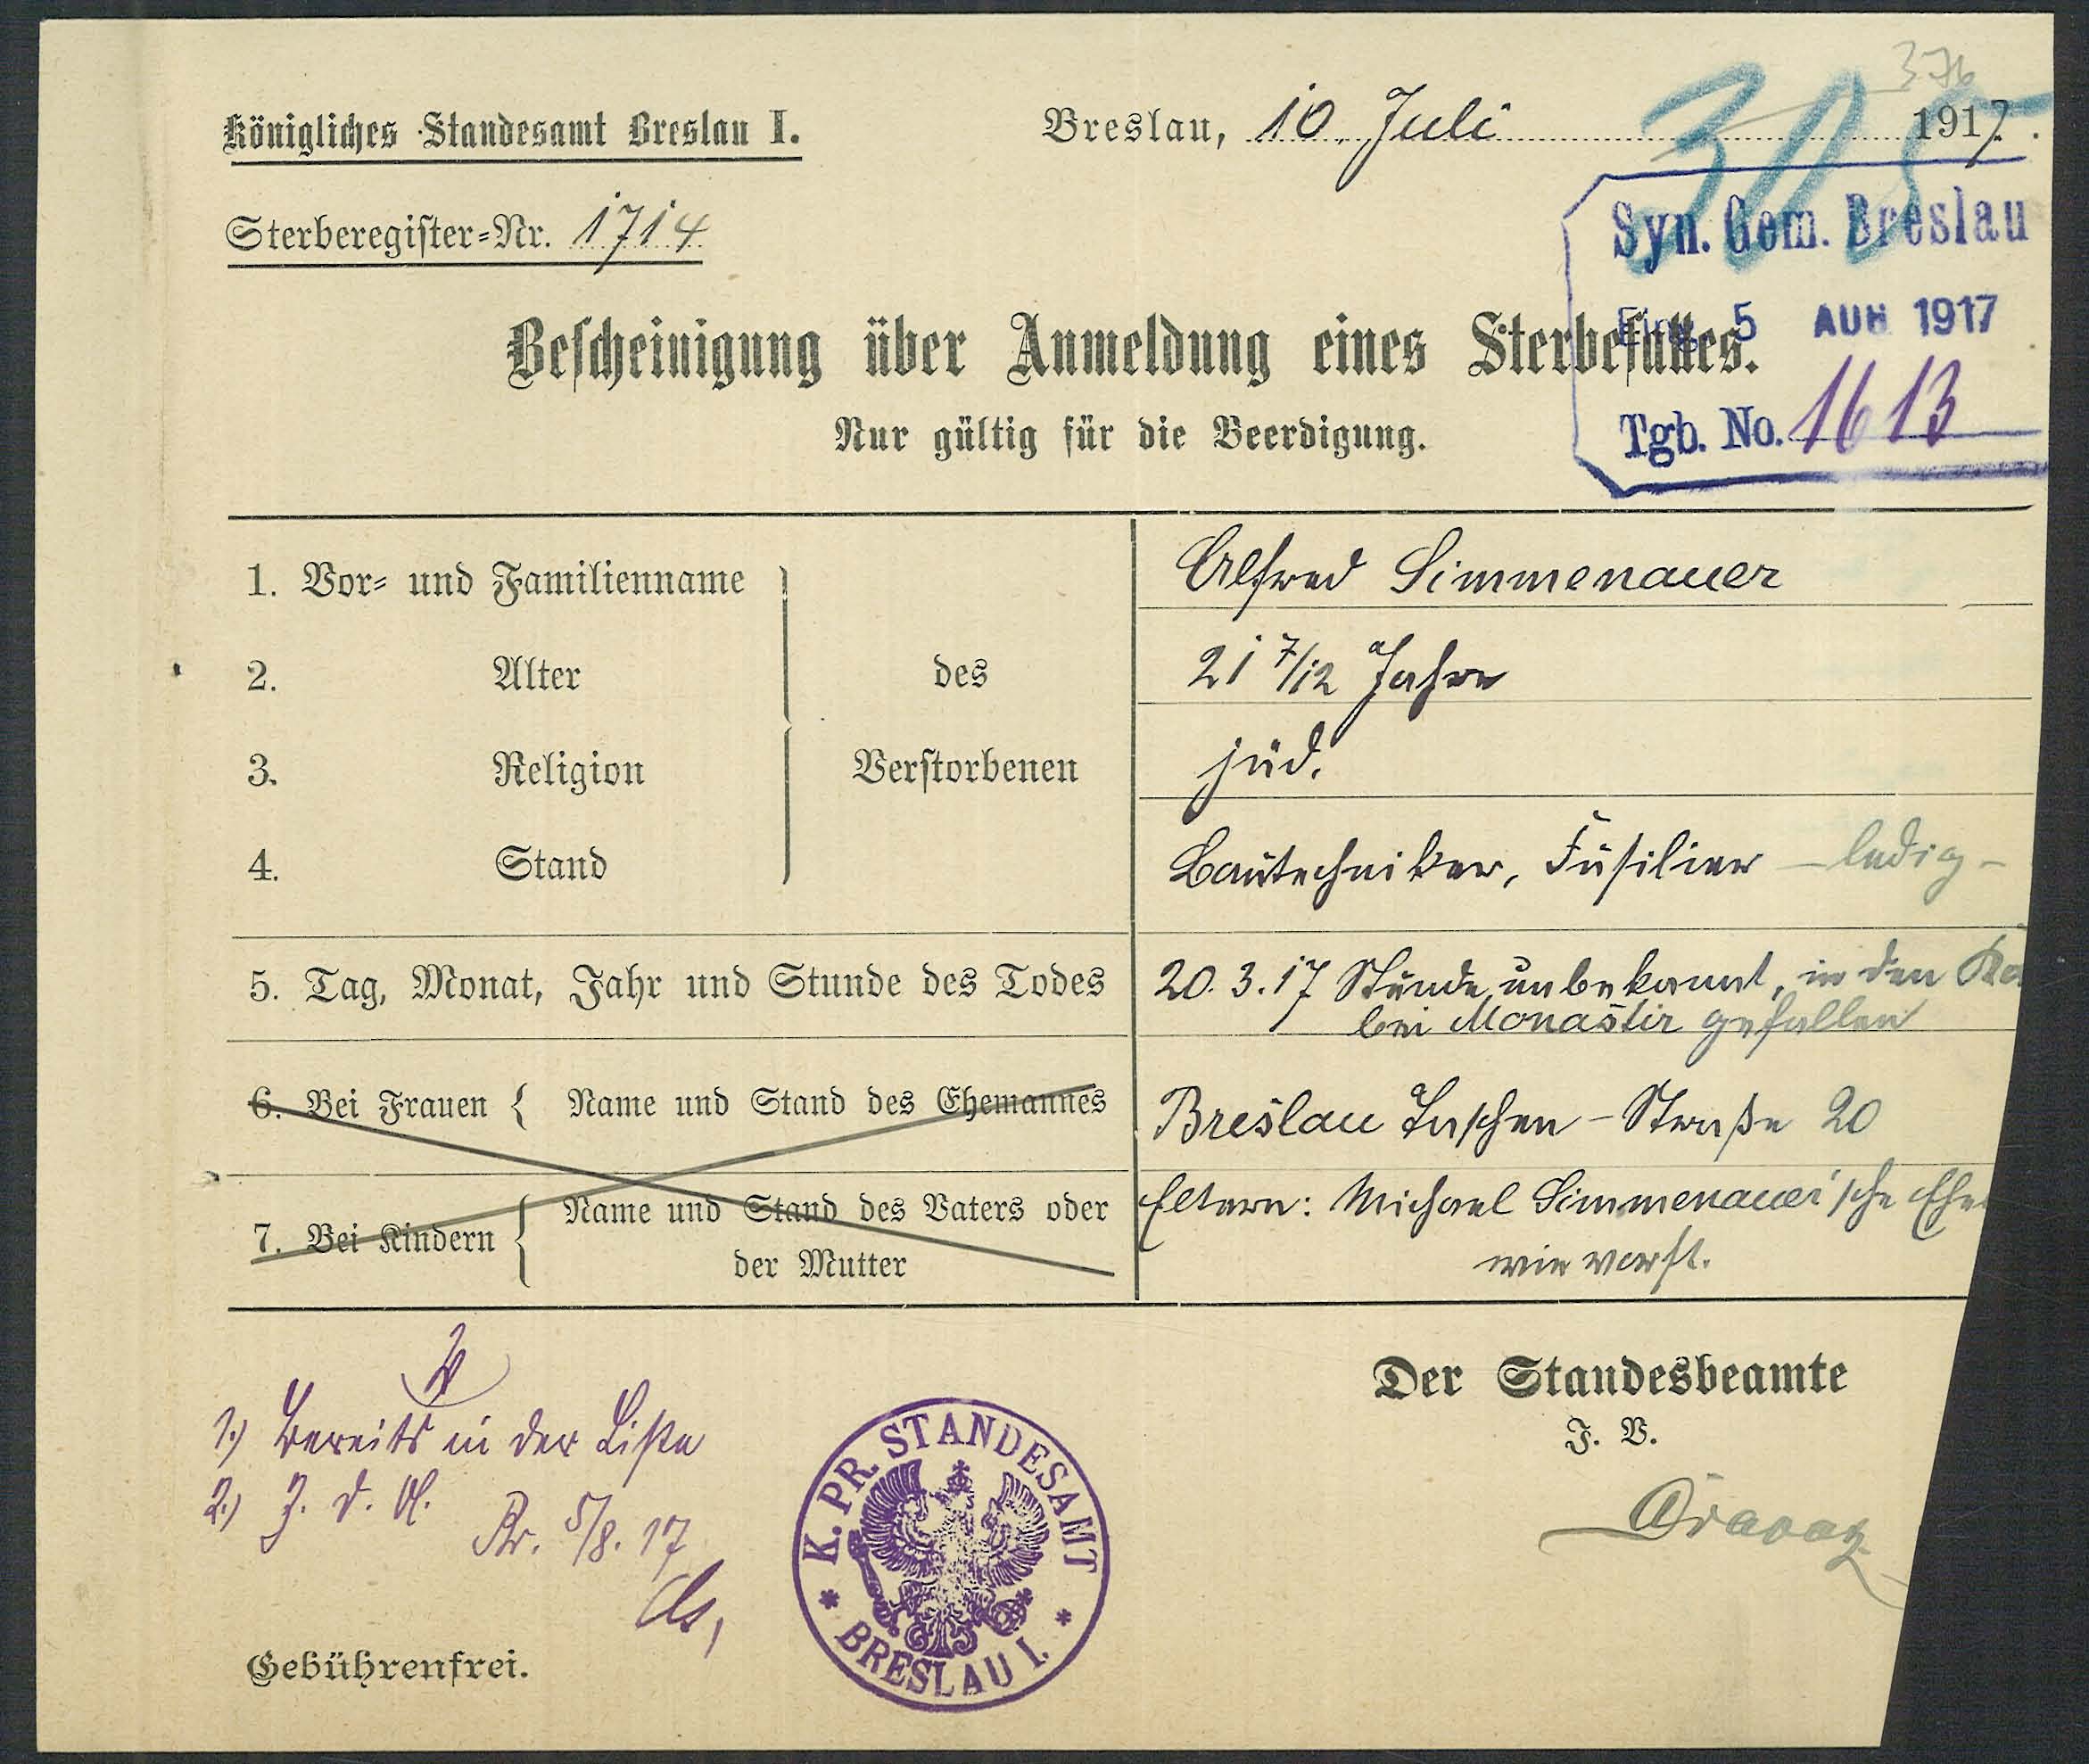 376
305
Königliches Standesamt Breslau I.
Breslau, 10. Juli 1917.
Sterberegister-Nr. 1714
Syn. Gem. Breslau
Eing. 5 AUG 1917
Tgb. No. 1613
Bescheinigung über Anmeldung eines Sterbefalles.
Nur gültig für die Beerdigung.
1. Vor- und Familienname
Alfred Simmenauer
2. Alter
des
21 7/12 Jahre
3. Religion
Verstorbenen
jüd.
4. Stand
Bautechniker, Füsilier – ledig –
5. Tag, Monat, Jahr und Stunde des Todes
20. 3. 17 Stunde unbekannt, in den
bei Monastir gefallen
6. Bei Frauen { Name und Stand des Ehemannes
Breslau Taschen-Straße 20
7. Bei Kindern { Name und Stand des Vaters oder
der Mutter
Eltern: Michael Simmenauer'sche
wie vorst.
1.) Bereits in der Liste
2.) Z. d. A.
Br. 5/8. 17
Der Standesbeamte
J. V.
K. PR. STANDESAMT
* BRESLAU I. *
Gebührenfrei.